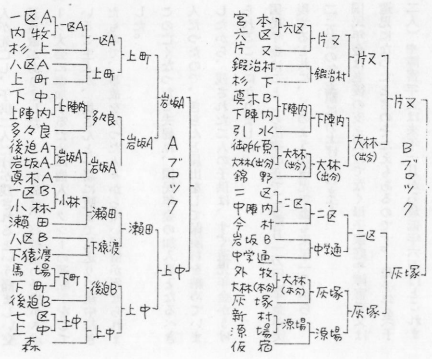 一区A
内牧
杉上
八区A
上町
下中
上陣内
多々良
後迫A
岩坂A
真木A
一区B
小林
瀬田
八区B
下猿渡
馬場
下町
後迫B
七区
上中
森
一区A
上陣内
岩坂A
小林
下町
上中
一区A
上町
多々良
岩坂A
瀬田
下猿渡
後迫B
上中
上町
岩坂A
瀬田
上中
岩坂A
上中
Aブロック
宮本
六区
片又
鍛治村
杉下
真木B
下陣内
引水
御所原
大林(出分)
錦野
二区
中陣内
今村
岩坂B
中学通
外牧
大林(本分)
灰塚
新村
源場
仮宿
六区
下陣内
大林(出分)
二区
大林(本分)
源場
片又
鍛治村
下陣内
大林(出分)
二区
中学通
灰塚
源場
片又
大林(出分)
二区
灰塚
片又
灰塚
Bブロック